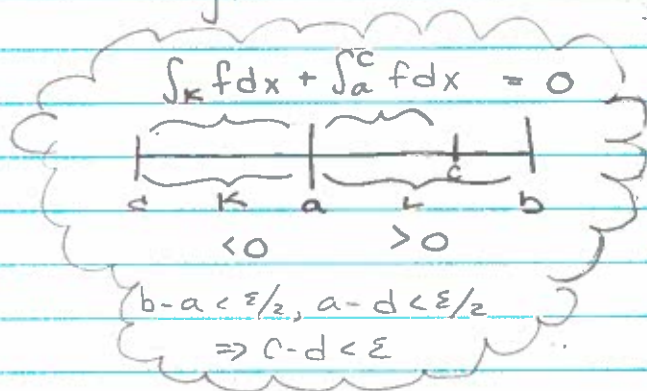 ∫_K f dx + ∫_a^c f dx = 0
c
K a L b
<0 >0
b-a < ε/2, a-d < ε/2
⇒ c-d < ε